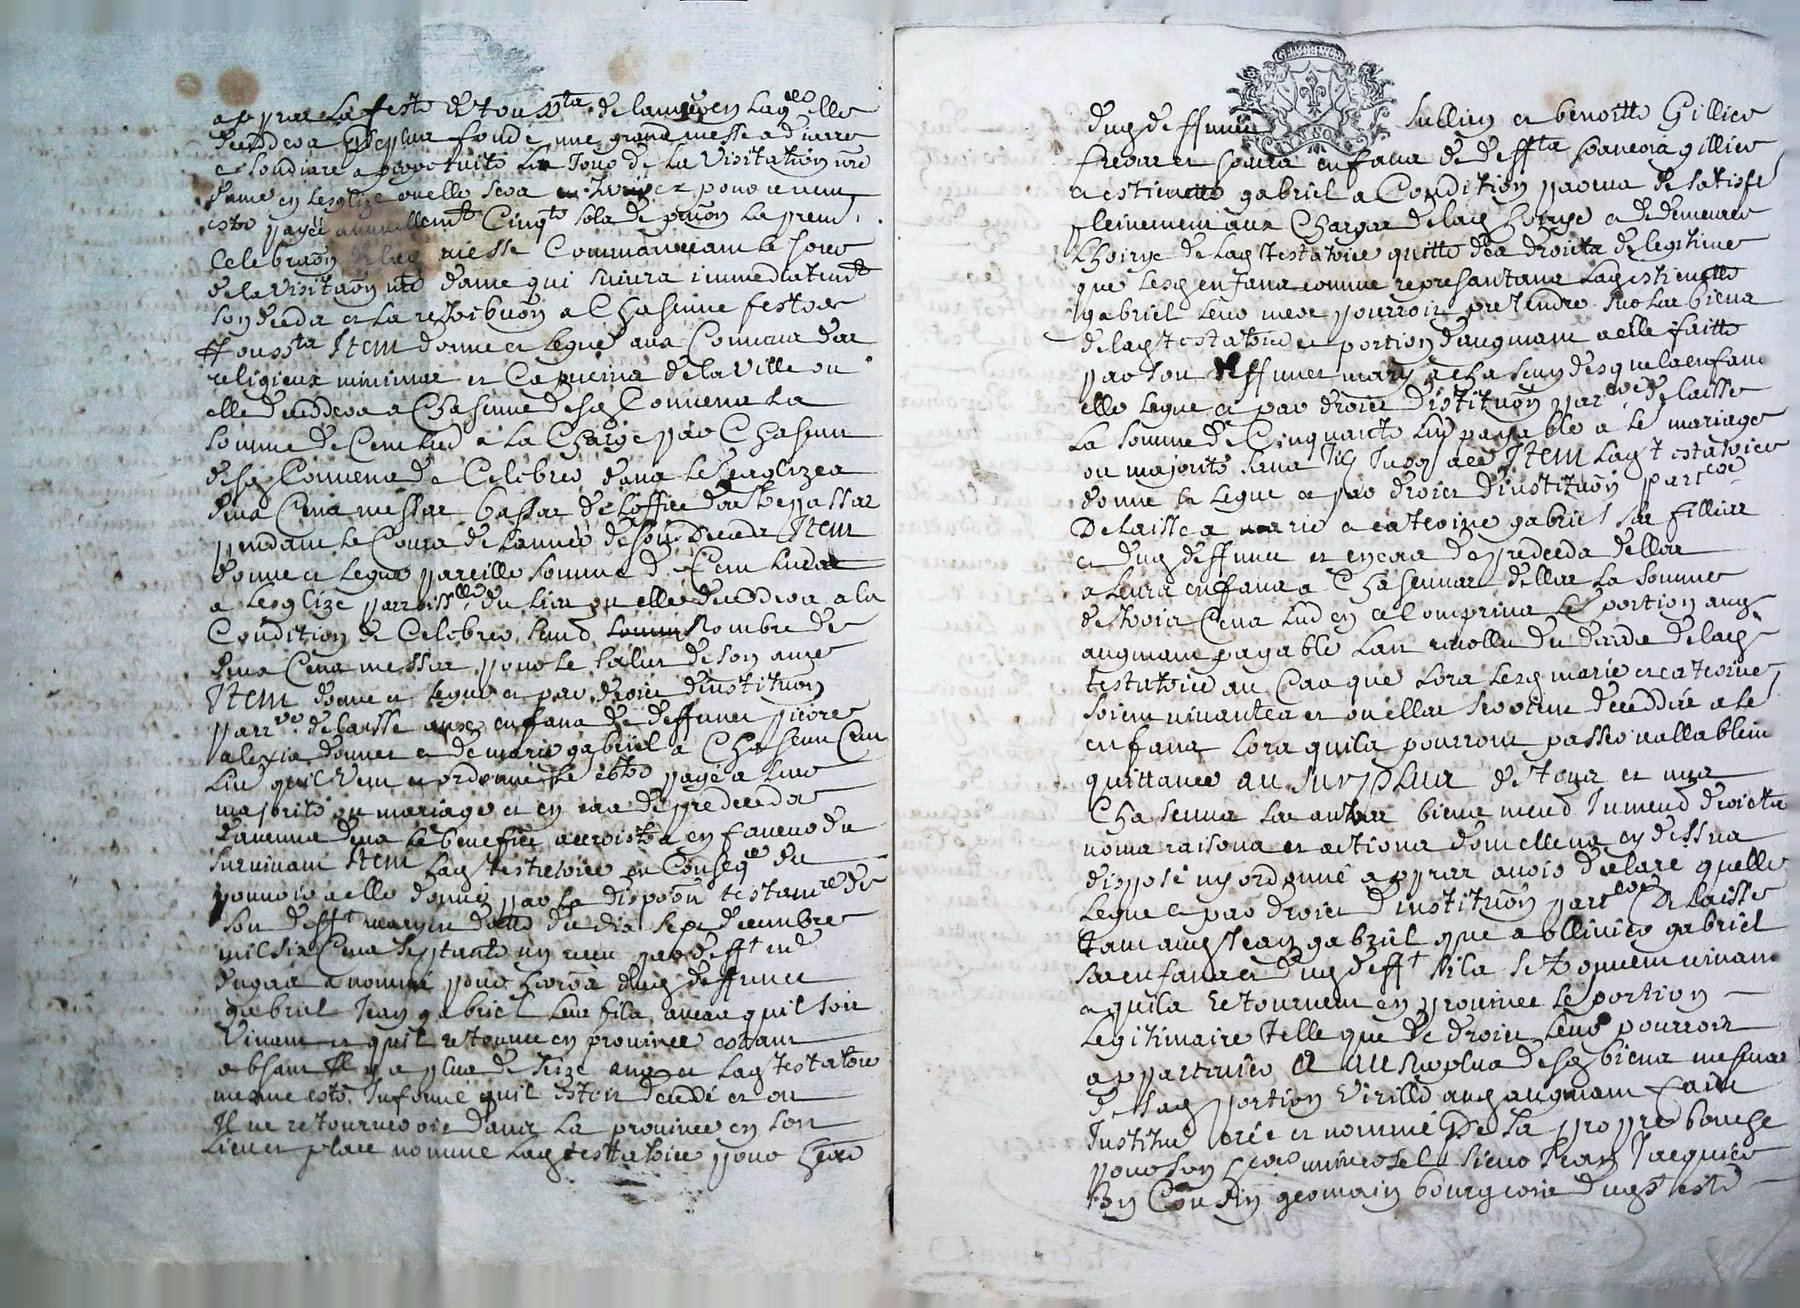 apprès la feste de touss.ts de lannée en laq.lle elle
deceddera Et fonde une grand messe a diacre
et soudiacre a perpetuitté Le Jour de la Visitation n.re
dame en lesglize ou elle sera pour ce
estre payée annuellem.t Cinq.te sols de
Celebraõn de lad messe Commanceant le jour
de la Visitaõn n.re dame qui suivra immediatem.t
son deceds et la rettribuõn a Chascune festes de
touss.ts Item donne et legue aux Couvens des
religieux minimes et Capucins de la Ville ou
elle deceddera a Chascune desd Couvens La
somme de Cent liv.s a la Charge par Chascun
desd Couvens de Celebrer dans leurs esglizes
deux Cens messes basses de loffice des trepassés
pendant le Cours de lannée de son deceds Item
donne et legue pareille somme de Cent livres
a lesglize parroiss.lle du lieu ou elle deceddera a la
Condition de Celebrer semb. nombre de
deux Cens messes pour le salut de son ame
Item donne et legue et par droict dinstituõn
parr.re delaisse aux enfans de deffunct pierre
alexis donnet et de marie gabriel a Chascun Cent
liv quil veut et ordonne le estre payé a leur
majorité ou mariage et en cas de predeceds
davenus deux le beneffice accroistra en faveur du
survivant Item lad testatrice en Conseq.ce du
pouvoir a elle donné par la disposõn testam.re de
son deff.t mary en datte du dix sept decembre
mil six Cens septante un receu par deff.t m.e
dugas a nommé pour heritier dud deffunct
gabriel Jean gabriel leur fils, aucas quil soit
Vivant et quil retourne en province estant
absent Il y a plus de seize ans et lad testatrice
mesme estre Informé quil estoit deceddé et ou
Il ne retourneroit dans la province en son
lieu et place nomme lad testatrice pour her.er
dud deffunct Jullien et benoitte Gillier
frere et soeur enfans de deff.ts francois gillier
et estiennette gabriel a Condition par eux de satisf.e
pleinement aux Charges de lad hoirye et de demeurer
Lhoirye de lad testatrice quitte des droicts de legitime
que lesd enfans comme representans lad estiennette
gabriel leur mere pourroit pretendre sur les biens
de lad testatrice et portion daugment a elle faitte
par son deffunct mary a chascun desquels enfans
elle legue et par droict dinstituõn par.re delaisse
La somme de Cinquante liv payable a le mariage
ou majorité sans Item Lad testatrice
donne et legue et par droict dinstituõn part.re
Delaisse a marie et catherine gabriel ses filles
et dud deffunct et en cas de predeceds delles
a leurs enfans a Chascunes delles la somme
de trois Cens liv.s en ce comprins le portion aug.t
augment payable lan revollu du deceds de lad
testatrice au Cas que lors lesd marie et catherine
soient vivantes et ou elles seroient deceddée a le
enfans lors quils pourront passer vallablem.t
quittance au surplus de tous et uns
Chascuns les autres biens meub Immeub droicts
noms raisons et actions dont elle na cy dessus
disposé ny ordonné apprès avoir declaré quelle
legue et par droict dinstituõn part.re Delaisse
tant aud Jean gabriel que a ollivier gabriel
ses enfans et dud deff.t sils se trouvent vivans
et quils retournent en province le portion
Legitimaire telle que de droict leur pourroit
appartenir et au surplus de sd biens mesmes
de sad portion virille aud augment faict
Institué créé et nommé De sa propre bouche
pour son h.er universel sieur Jean Jacquier
son Cousin germain bourgeois dud